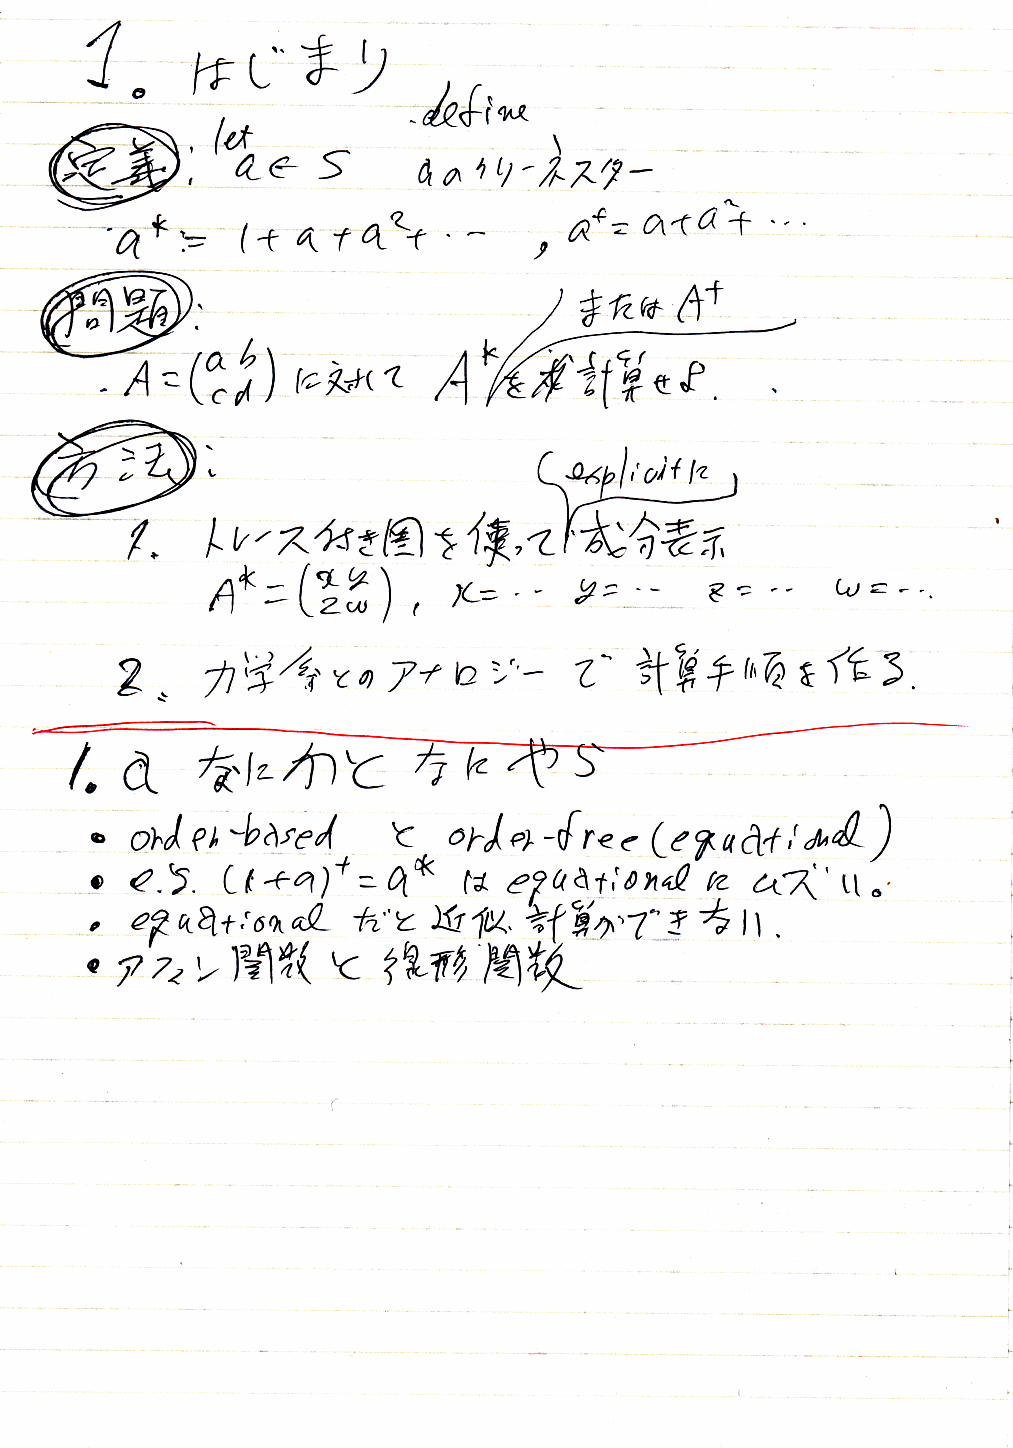 1。はじまり
定義: let a ∈ S define aのクリーネスター
a* := 1+a+a²+‥ , a⁺=a+a²+…
問題:
またはA⁺
A=(a b c d)に対してA*を計算せよ.
方法:
explicitに
1. トレース付き圏を使って成分表示
A*=(x y z w), x=‥ y=‥ z=‥ w=‥.
2、力学系とのアナロジーで計算手順を作る.
1.a なにかとなにやら
• order-based と order-free(equational)
• e.g. (1+a)⁺=a* は equationalにムズい。
• equational だと近似計算ができない.
• アフィン関数と線形関数